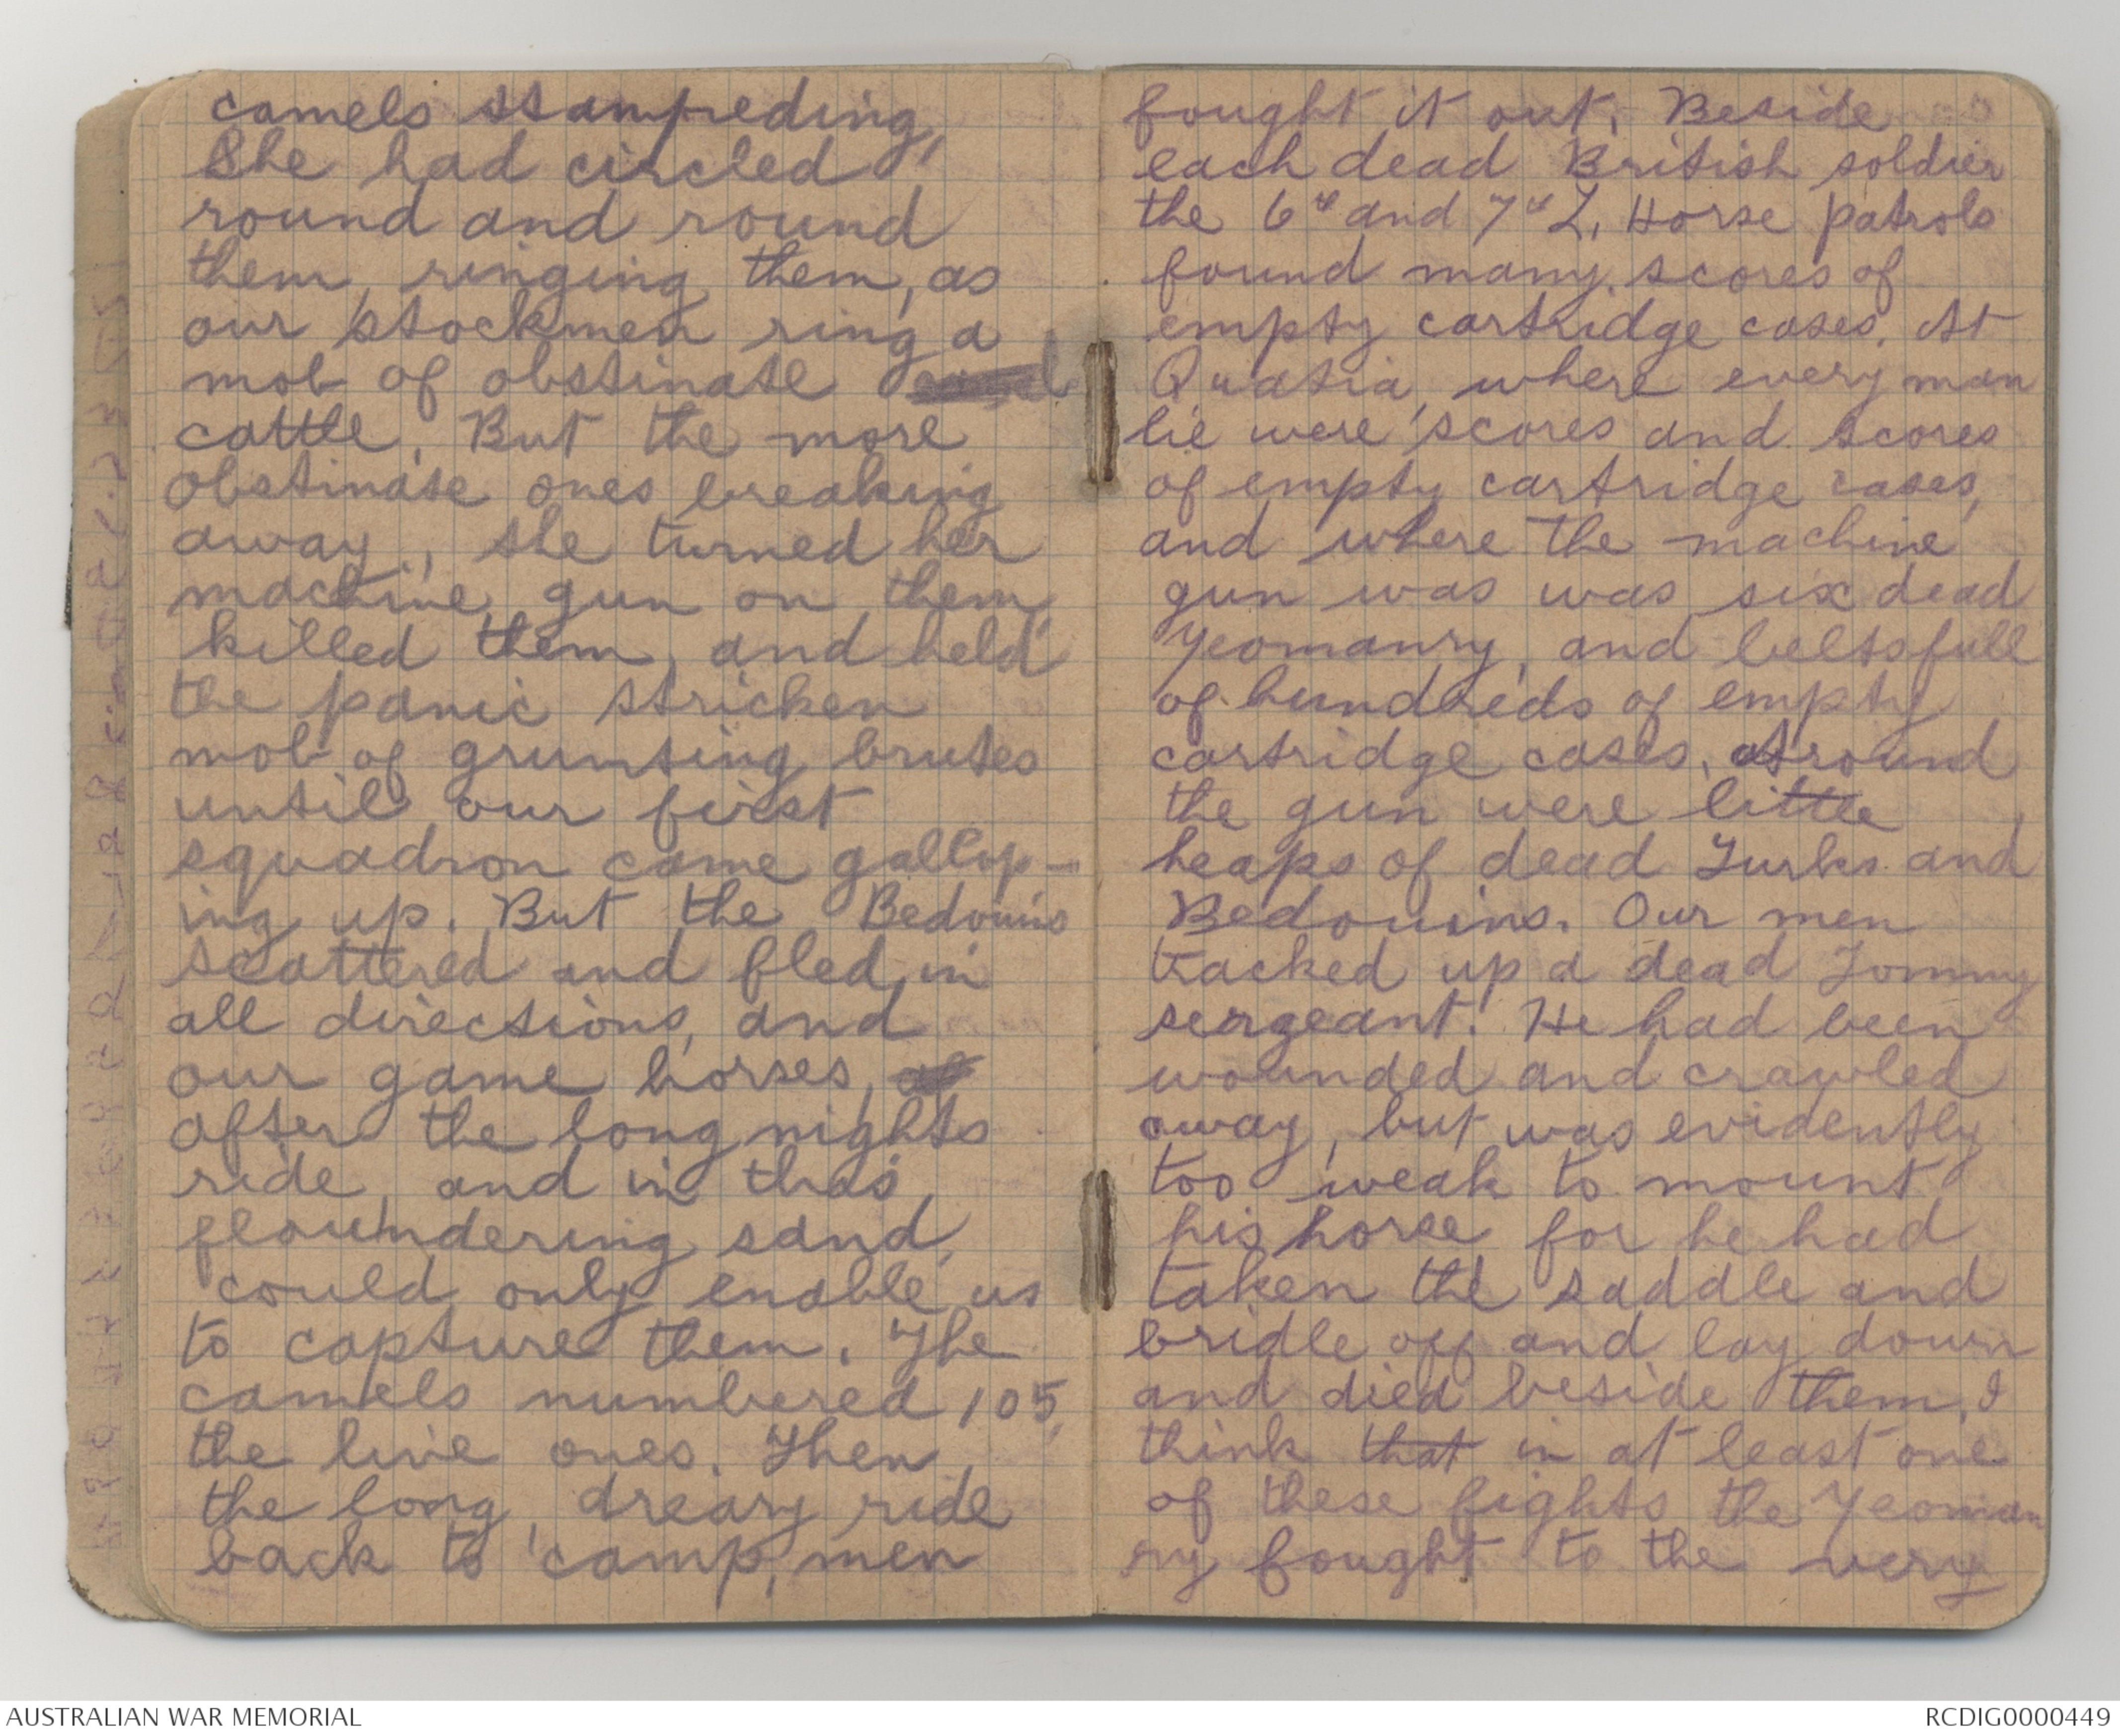 camels stampeding,
She had circled
round and round
them, ringing them, as
our stockmen ring a
mob of obstinate
cattle. But the more
obstinate ones breaking
away, she turned her
machine gun on them,
killed them, and held
the panic stricken
mob of grunting brutes
until our first
squadron came gallop-
ing up. But the Bedouins
scattered and fled in
all directions, and
our game horses,
after the long nights
ride, and in this
floundering sand,
could only enable us
to capture them. The
camels numbered 105,
the live ones. Then
the long, dreary ride
back to camp, men
fought it out. Beside
each dead British soldier
the 6th and 7th L. Horse patrols
found many scores of
empty cartridge cases. At
Quatia, where every man
lie were scores and scores
of empty cartridge cases,
and where the machine
gun was was six dead
Yeomanry, and belts full
of hundreds of empty
cartridge cases. Around
the gun were little
heaps of dead Turks and
Bedouins. Our men
tracked up a dead Tommy
sergeant. He had been
wounded and crawled
away, but was evidently
too weak to mount
his horse for he had
taken the saddle and
bridle off and lay down
and died beside them. I
think that in at least one
of these fights the Yeoman
ry fought to the very
AUSTRALIAN WAR MEMORIAL
RCDIG0000449